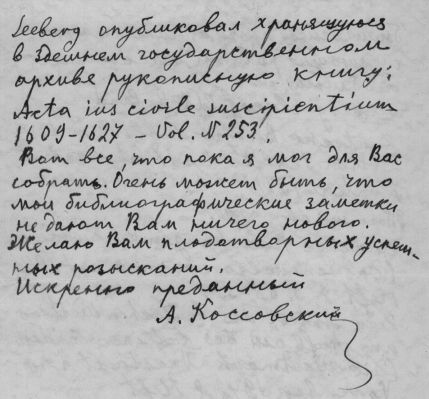 Seeberg опубликовал хранящуюся
в здешнем государственном
архиве рукописную книгу:
Acta ius civile suscipientium
1609-1627 – Vol. N 253.
Вот все, что пока я мог для Вас
собрать. Очень может быть, что
мои библиографические заметки
не дают Вам ничего нового.
Желаю Вам плодотворных успеш-
ных розысканий.
Искренно преданный
А. Коссовский